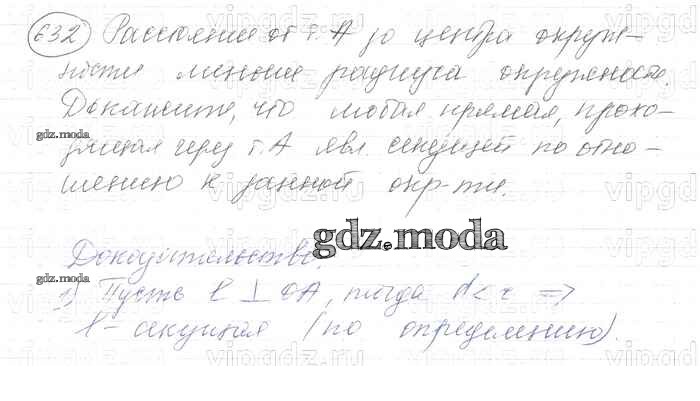 632 Расстояние от т. А до центра окруж-
ности меньше радиуса окружности.
Докажите, что любая прямая, прохо-
дящая через т. А явл. секущей по отно-
шению к данной окр-ти.
gdz.moda
Доказательство.
gdz.moda
1) Пусть l ⊥ OA, тогда d < r ⇒
l - секущая (по определению).
gdz.moda
vipgdz.ru